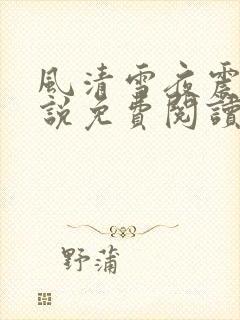 風清雪夜震
說免費閱讀
野蒲